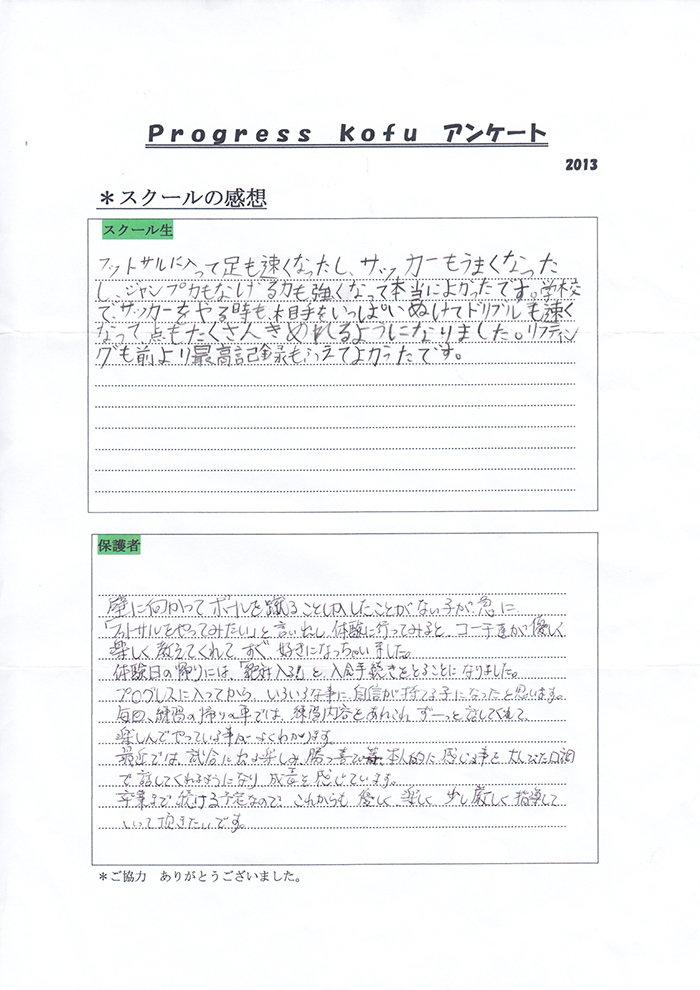 Progress Kofu アンケート
2013
＊スクールの感想
スクール生
フットサルに入って足も速くなったし、サッカーもうまくなった
し、ジャンプ力もなげる力も強くなって本当によかったです。学校
でサッカーをやる時も、相手をいっぱいぬけてドリブルも速く
なって点もたくさんきめれるようになりました。リフティン
グも前より最高記録もふえてよかったです。
保護者
壁に向かってボールを蹴ることしかしたことがない子が急に
「フットサルをやってみたい」と言い出し、体験に行ってみると、コーチ達が優しく
楽しく教えてくれて、すぐ、好きになっちゃいました。
体験日の帰りには、「絶対入る!」と、入会手続きをとることになりました。
プログレスに入ってから、いろいろな事に、自信が持てる子になったと思います。
毎回、練習の帰りの車では、練習内容をあれこれ ずーっと話してくれて、
楽しんでやっている事がよくわかります。
最近では、試合に出る楽しみ、勝つ喜び 本人的に感じる事を 口調
で話してくれるようになり 成長を感じています。
卒業まで続ける予定なので、これからも 優しく 楽しく 少し厳しく指導して
いって頂きたいです。
＊ご協力 ありがとうございました。